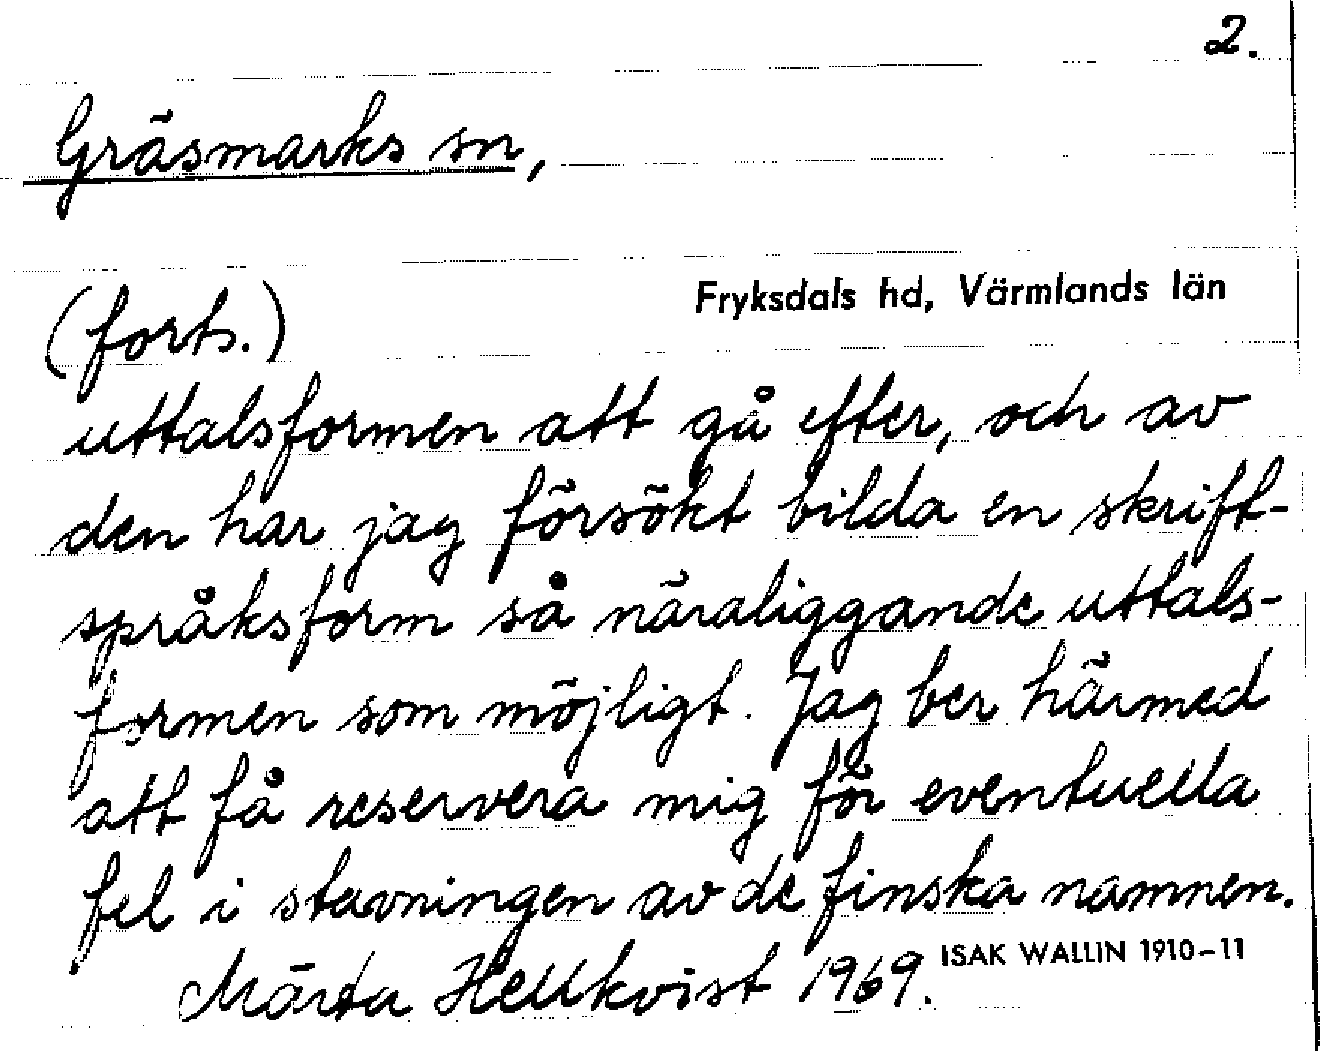 2.
Gräsmarks sn,
Fryksdals hd, Värmlands län
(forts.)
uttalsformen att gå efter, och av
den har jag försökt bilda en skrift-
språksform så näraliggande uttals-
formen som möjligt. Jag ber härmed
att få reservera mig för eventuella
fel i stavningen av de finska namnen.
Märta Hellkvist 1969.
ISAK WALLIN 1910-11